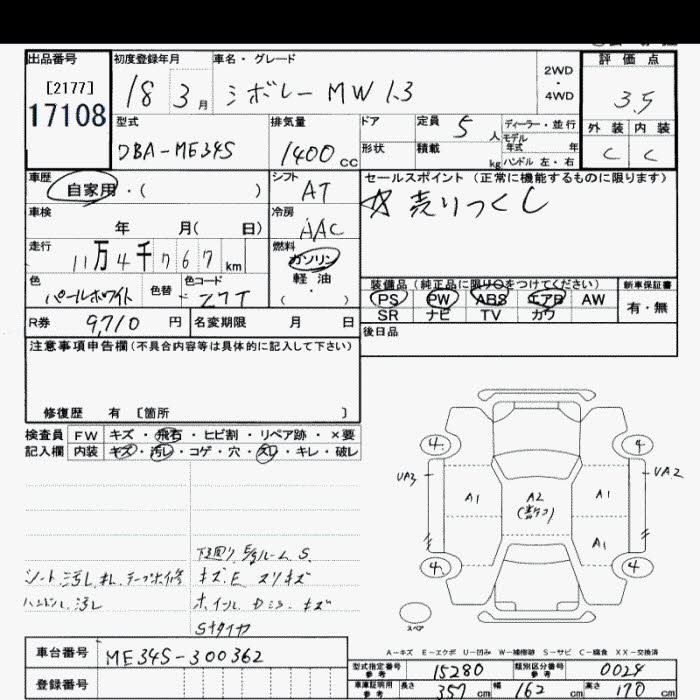 出品番号
[2177]
17108
初度登録年月
18 3月
車名・グレード
シボレー MW 1.3
2WD
・
4WD
評価点
3.5
外装 内装
C C
型式
DBA-ME34S
排気量
1400 cc
ドア
形状
定員 5人
積載 kg
ディーラー・並行
モデル
年式 年
ハンドル 左・右
車歴
自家用・( )
シフト
AT
セールスポイント (正常に機能するものに限ります)
☆ 売りつくし
車検
年 月( 日)
冷房
AAC
走行
11万4千767km
燃料
ガソリン
軽油
・
( )
色
パールホワイト
色替
色コード
Z7T
装備品(純正品に限り○をつけてください)
PS PW ABS エアB AW
SR ナビ TV カワ
新車保証書
有・無
R券 9,710 円
名変期限 月 日
後日品
注意事項申告欄(不具合内容等は具体的に記入して下さい)
修復歴 有 〔箇所 〕
検査員
記入欄
FW キズ・飛石・ヒビ割・リペア跡・×要
内装 キズ・汚レ・コゲ・穴・スレ・キレ・破レ
4 4
UA3 UA2
A1 A2 A1
A1
4 4
スペア
下廻り、E/gルームS
シート汚レ、キレ、テープホ修
キズE スリキズ
ハンドル汚レ
ホイルDミゾ キズ
Sタイヤ
A-キズ E-エクボ U-凹み W-補修跡 S-サビ C-腐食 XX-交換済
車台番号 ME34S-300362
登録番号
型式指定番号
参考
15280
類別区分番号
参考
0024
車庫証明用
参考
長さ 357 cm 幅 162 cm 高さ 170 cm